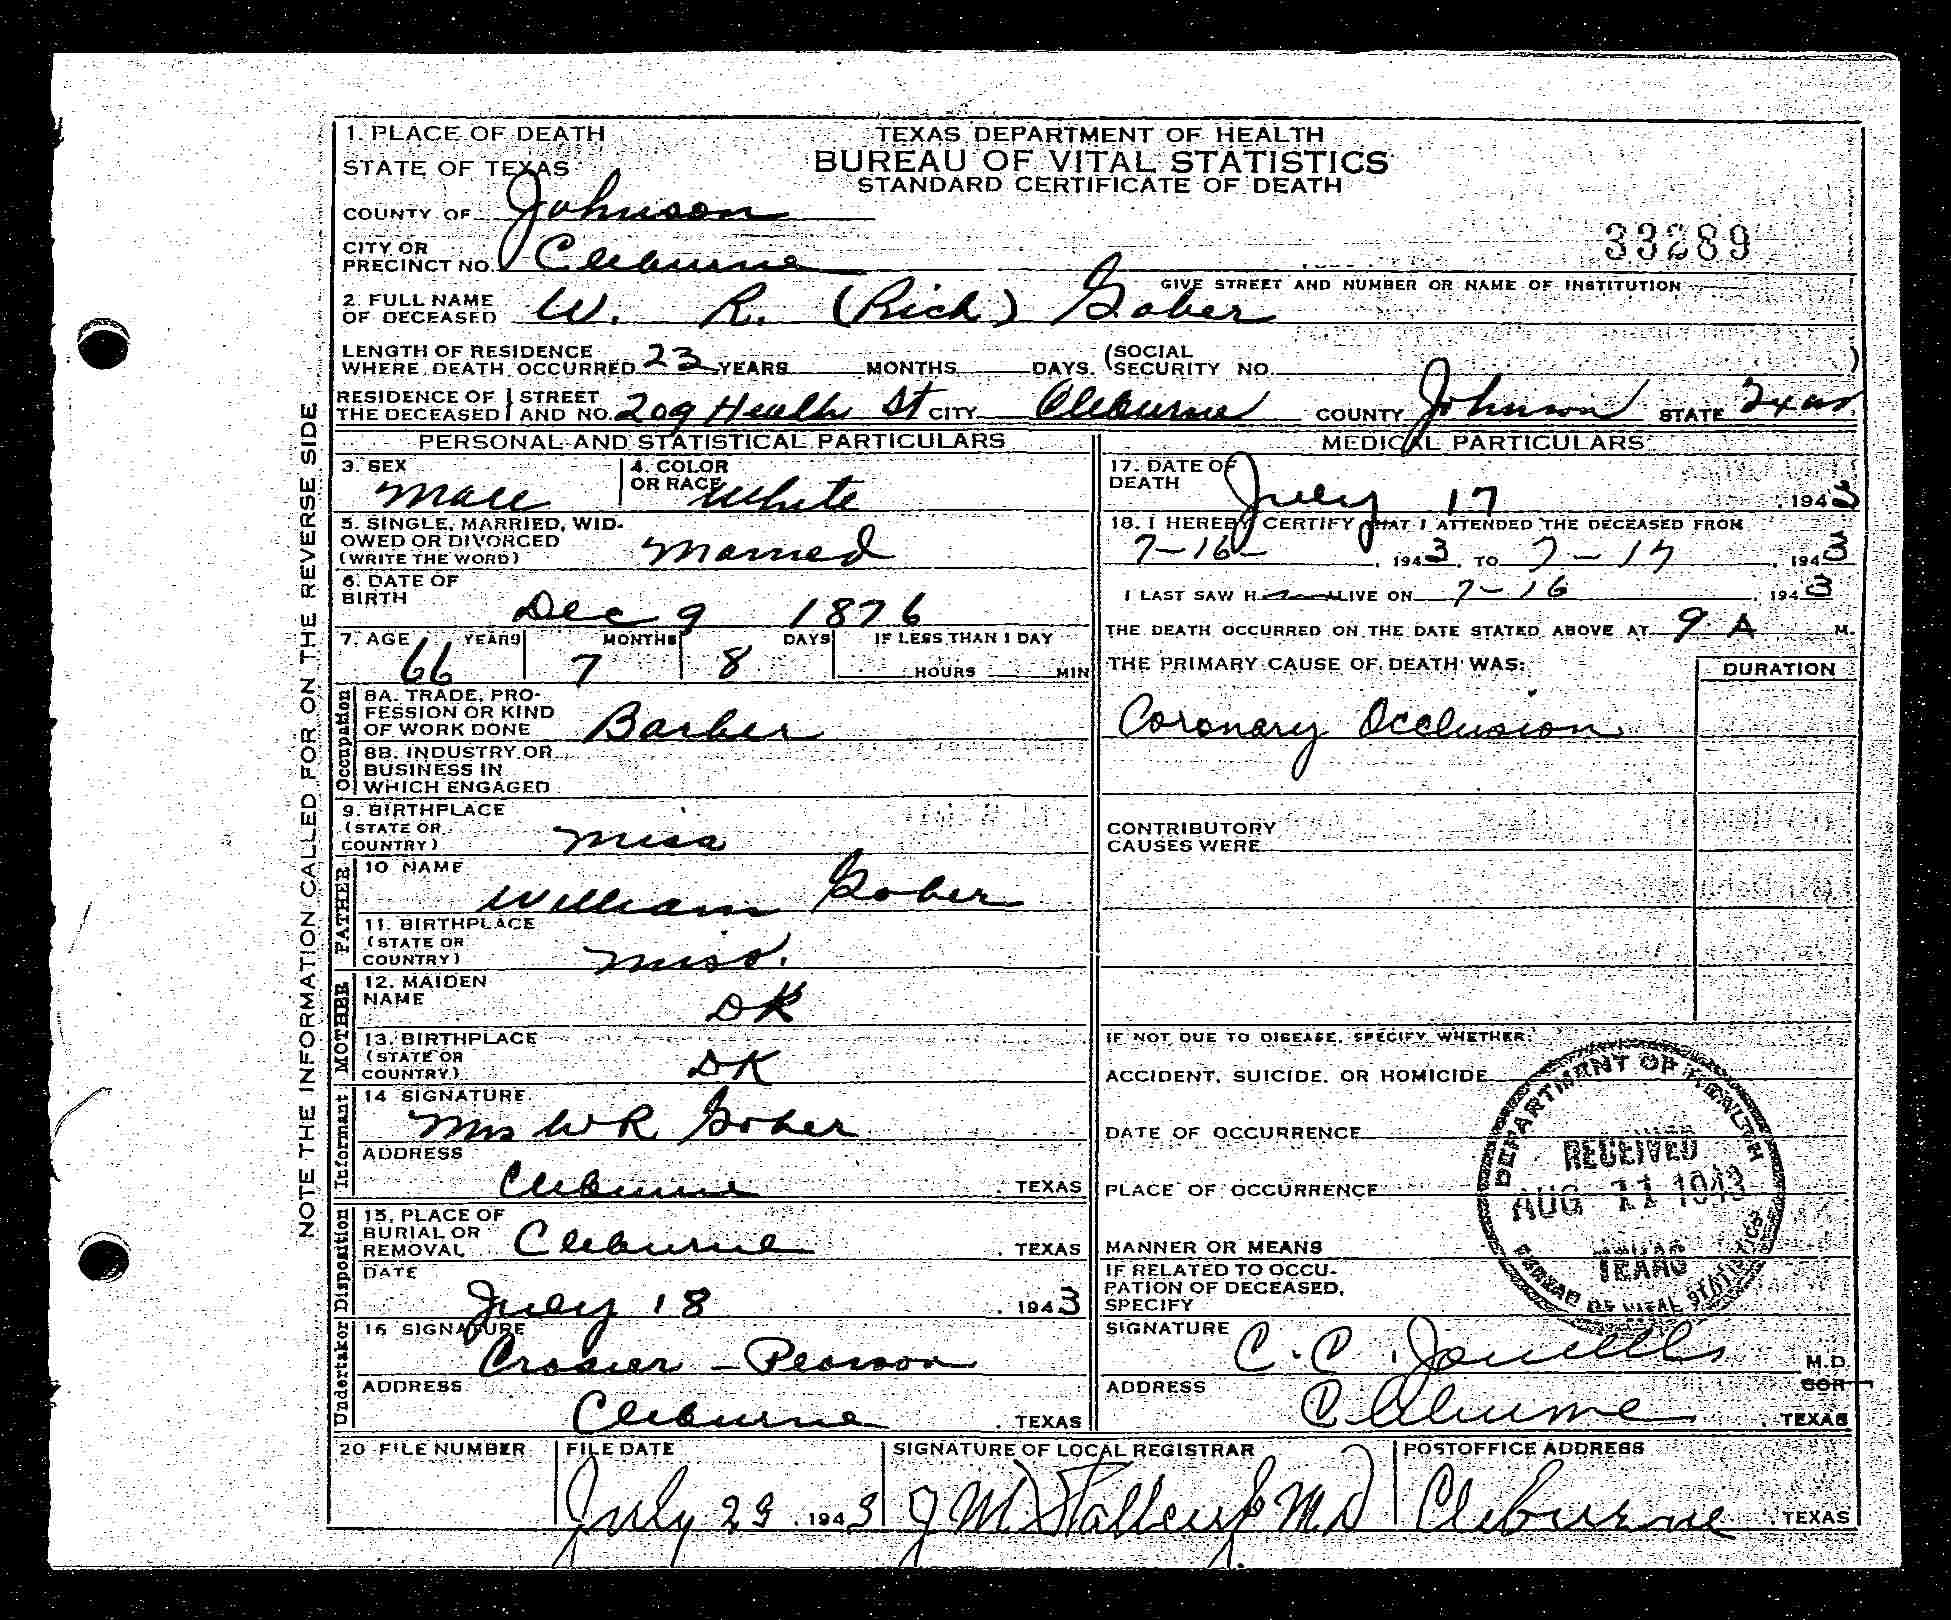 NOTE THE INFORMATION CALLED FOR ON THE REVERSE SIDE
1. PLACE OF DEATH
STATE OF TEXAS
TEXAS DEPARTMENT OF HEALTH
BUREAU OF VITAL STATISTICS
STANDARD CERTIFICATE OF DEATH
COUNTY OF Johnson
33289
CITY OR
PRECINCT NO. Cleburne
GIVE STREET AND NUMBER OR NAME OF INSTITUTION
2. FULL NAME
OF DECEASED W. R. (Rich) Gober
LENGTH OF RESIDENCE
WHERE DEATH OCCURRED 23 YEARS MONTHS DAYS (SOCIAL SECURITY NO. )
RESIDENCE OF THE DECEASED STREET AND NO. 209 Heath St CITY Cleburne COUNTY Johnson STATE Texas
PERSONAL AND STATISTICAL PARTICULARS
3. SEX Male
4. COLOR OR RACE White
5. SINGLE, MARRIED, WID-
OWED OR DIVORCED
(WRITE THE WORD) Married
6. DATE OF
BIRTH Dec 9 1876
7. AGE YEARS MONTHS DAYS IF LESS THAN 1 DAY
66 7 8 HOURS MIN
Occupation
8A. TRADE, PRO-
FESSION OR KIND
OF WORK DONE Barber
8B. INDUSTRY OR
BUSINESS IN
WHICH ENGAGED
9. BIRTHPLACE
(STATE OR
COUNTRY) Miss
FATHER
10 NAME
William Gober
11. BIRTHPLACE
(STATE OR
COUNTRY) Miss.
MOTHER
12. MAIDEN
NAME DK
13. BIRTHPLACE
(STATE OR
COUNTRY) DK
Informant
14 SIGNATURE
Mrs W R Gober
ADDRESS
Cleburne , TEXAS
Disposition
15. PLACE OF
BURIAL OR
REMOVAL Cleburne , TEXAS
DATE
July 18 , 1943
Undertaker
16 SIGNATURE
Crosier - Pearson
ADDRESS
Cleburne , TEXAS
MEDICAL PARTICULARS
17. DATE OF
DEATH July 17 , 1943
18. I HEREBY CERTIFY THAT I ATTENDED THE DECEASED FROM
7-16- , 1943, TO 7-17 , 1943
I LAST SAW H ALIVE ON 7-16 , 1943
THE DEATH OCCURRED ON THE DATE STATED ABOVE AT 9 A M.
THE PRIMARY CAUSE OF DEATH WAS: DURATION
Coronary Occlusion
CONTRIBUTORY
CAUSES WERE
IF NOT DUE TO DISEASE, SPECIFY WHETHER:
ACCIDENT, SUICIDE, OR HOMICIDE
DATE OF OCCURRENCE
PLACE OF OCCURRENCE
MANNER OR MEANS
IF RELATED TO OCCU-
PATION OF DECEASED,
SPECIFY
DEPARTMENT OF HEALTH
RECEIVED
AUG 11 1943
TEXAS
BUREAU OF VITAL STATISTICS
SIGNATURE C. C. M.D.
COR
ADDRESS Cleburne , TEXAS
20 FILE NUMBER
FILE DATE
July 23, 1943
SIGNATURE OF LOCAL REGISTRAR
J M Stallcup MD
POSTOFFICE ADDRESS
Cleburne , TEXAS